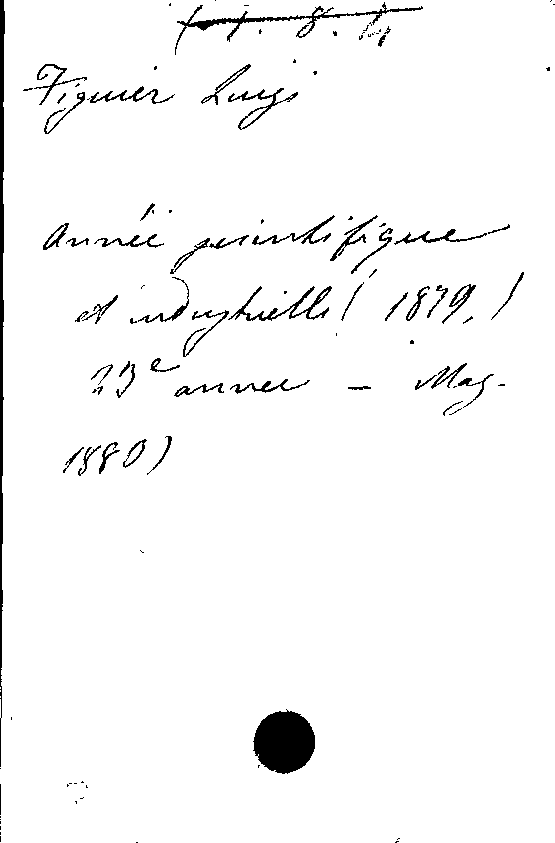 Figuier Luigi
Année scientifique
et industrielle ( 1879, )
23e année - Mag-
1880)